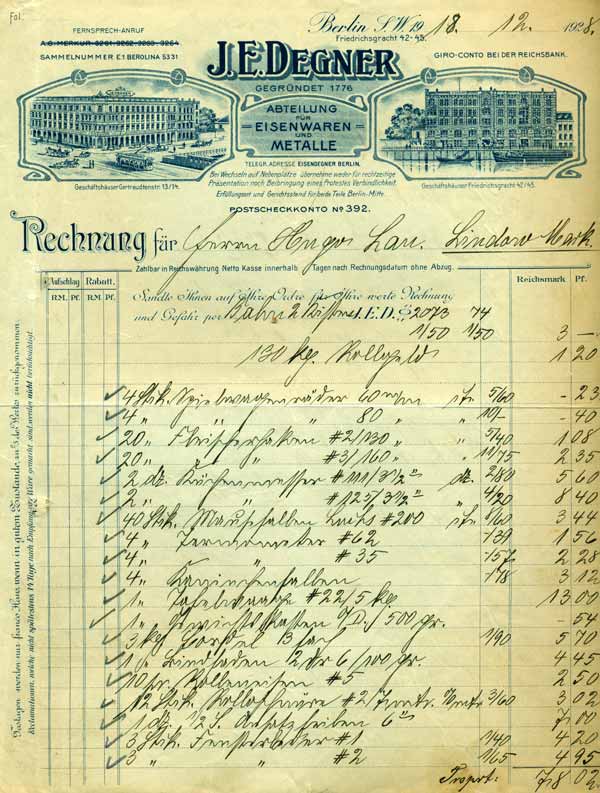 Fol.
FERNSPRECH-ANRUF
A.G. MERKUR 3261, 3262, 3263, 3264
SAMMELNUMMER E1 BEROLINA 5331
Berlin S.W. 19 18. 12. 1928.
Friedrichsgracht 42-45.
GIRO-CONTO BEI DER REICHSBANK.
J.E. DEGNER
GEGRÜNDET 1776
ABTEILUNG
FÜR
EISENWAREN
UND
METALLE
TELEGR. ADRESSE EISENDEGNER BERLIN.
Bei Wechseln auf Nebenplätze übernehme weder für rechtzeitige
Präsentation noch Beibringung eines Protestes Verbindlichkeit.
Erfüllungsort und Gerichtsstand für beide Teile Berlin-Mitte.
Geschäftshäuser Gertraudenstr. 13/14.
Geschäftshäuser Friedrichsgracht 42/45.
POSTSCHECKKONTO No 392.
Rechnung für Herrn Hugo Lau. Lindow Mark.
Zahlbar in Reichswährung Netto Kasse innerhalb Tagen nach Rechnungsdatum ohne Abzug.
Aufschlag Rabatt. Reichsmark Pf.
R.M. Pf. R.M. Pf.
Sandte Ihnen auf Ihre Ordre für Ihre werte Rechnung
und Gefahr per Bahn 2 Kisten J.E.D. 2073 74
1/50 1/50 3 —
130 kg. Rollgeld 1 20
4 Stk. Spielwagenräder 60 m/m 5/60 - 23
4 " " 80 " 10/- - 40
20 " #2/130 " 5/40 1 08
20 " " #3/160 " 11/75 2 35
2 dz. Küchenmesser #111/3½" dz. 2/80 5 60
2 " " #123/3½" 4/20 8 40
40 Stk. Mausefallen Luchs #200 3 44
4 " Termometer #62 -/39 1 56
4 " " #35 -/57 2 28
4 " Kaninchenfallen -/78 3 12
1 " Tafelwaage #22/5 kg 13 00
1 " Gewichtskasten 500 gr. - 54
3 kg 3 fach 1/90 5 70
Bindfaden 2 dr 6/100 gr. 4 45
10 Rolleneisen #5 2 50
12 Stk. #2/7 mtr. 3/60 3 02
1 dz. 6" 7 00
3 Stk. Fensterleder #1 1/40 4 20
3 " " #2 1/65 4 95
Transport: 78 02
Packagen werden nur franco Haus, wenn in gutem Zustande, zu ⅔ des Wertes zurückgenommen.
Reklamationen, welche nicht spätestens 14 Tage nach Empfang der Ware gemacht, sind werden nicht berücksichtigt.